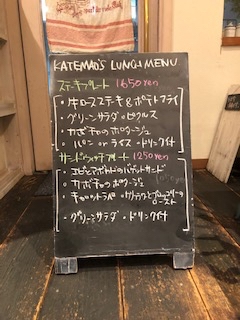 KATEMAO'S LUNCH MENU
ステーキプレート 1650yen
・牛ロースステーキ&ポテトフライ
・グリーンサラダ・ピクルス
・カボチャのポタージュ
・パン or ライス・ドリンク付
サンドウィッチプレート 1250yen
・エビとアボカドのバゲットサンド
・カボチャのポタージュ
・キャロットラペ
ロースト
・グリーンサラダ ・ドリンク付